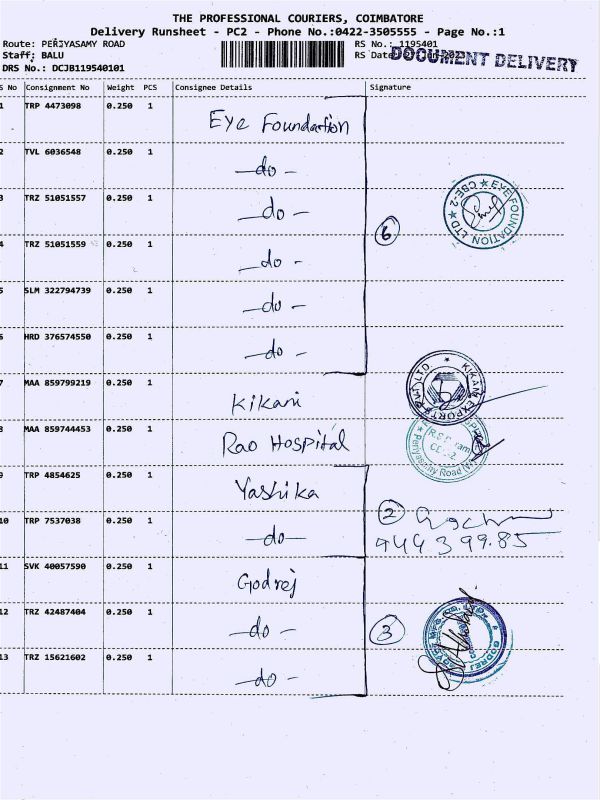 THE PROFESSIONAL COURIERS, COIMBATORE
Delivery Runsheet - PC2 - Phone No.:0422-3505555 - Page No.:1
Route: PERIYASAMY ROAD RS No.: 1195401
Staff: BALU RS Date
DOCUMENT DELIVERY
DRS No.: DCJB119540101
S No Consignment No Weight PCS Consignee Details Signature
1 TRP 4473098 0.250 1 Eye Foundation
2 TVL 6036548 0.250 1 -do-
3 TRZ 51051557 0.250 1 -do-
EYE FOUNDATION LTD ★ CBE-2 ★
6
4 TRZ 51051559 0.250 1 -do-
5 SLM 322794739 0.250 1 -do-
6 HRD 376574550 0.250 1 -do-
7 MAA 859799219 0.250 1 Kikani
KIKANI EXPORTS PVT LTD
8 MAA 859744453 0.250 1 Rao Hospital
Periyasamy Road
9 TRP 4854625 0.250 1 Yashika
2
10 TRP 7537038 0.250 1 -do-
944399.85
11 SVK 40057590 0.250 1 Godrej
12 TRZ 42487404 0.250 1 -do-
3
GODREJ
13 TRZ 15621602 0.250 1 -do-